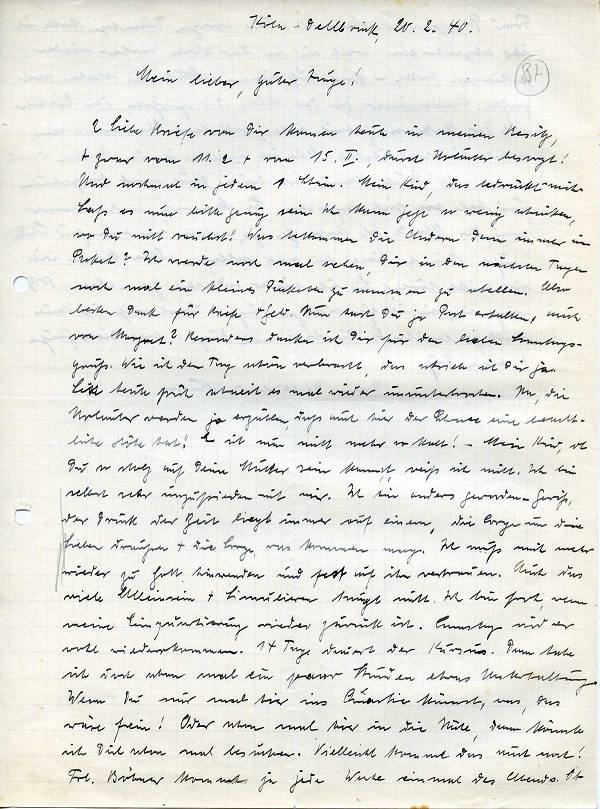 Köln-Dellbrück, 20.2.40.
Mein lieber, guter Junge!
2 liebe Briefe von Dir kamen heute in meinen Besitz,
+ zwar vom 11.2 + vom 15.II., durch Urlauber besorgt!
Und nochmal in jedem 1 Schein. Mein Kind, das bedrückt mich.
Laß es nun bitte genug sein. Ich kann jetzt so wenig schicken,
wo Du nicht rauchst! Was bekommen die Andern denn immer im
Paket? Ich werde noch mal sehen, Dir in den nächsten Tagen
noch mal ein kleines Päckchen zusammen zu stellen. Also
besten Dank für Briefe + Geld. Nun hast Du ja Post erhalten, auch
von Margret? Besonders danke ich Dir für den lieben Sonntags-
gruß. Wie ich den Tag schön verbracht, das schrieb ich Dir ja.
Seit heute früh schneit es mal wieder ununterbrochen. Na, die
Urlauber werden ja erzählen, daß auch hier der Schnee eine beacht-
liche Höhe hat! ist nun nicht mehr so kalt! - Mein Kind, ob
Du so stolz auf Deine Mutter sein kannst, weiß ich nicht. Ich bin
selbst sehr unzufrieden mit mir. Ich bin anders geworden - Gewiß,
der Druck der Zeit liegt immer auf einem, die Sorge um die
Lieben draußen + die Sorge, was kommen mag. Ich muß mich mehr
wieder zu Gott hinwenden und fest auf ihn vertrauen. Auch das
viele Alleinsein + Simulieren taugt nicht. Ich bin froh, wenn
meine Einquartierung wieder zurück ist. Samstag wird er
wohl wiederkommen. 14 Tage dauert der Kursus. Dann habe
ich doch schon mal ein paar Stunden etwas Unterhaltung
Wenn Du nur mal hier ins Quartier kämst, das
wäre fein! Oder schon mal hier in die Nähe, dann könnte
ich Dich schon mal besuchen. Vielleicht kommt das auch noch!
Frl. Böhmer kommt ja jede Woche einmal des Abends. St